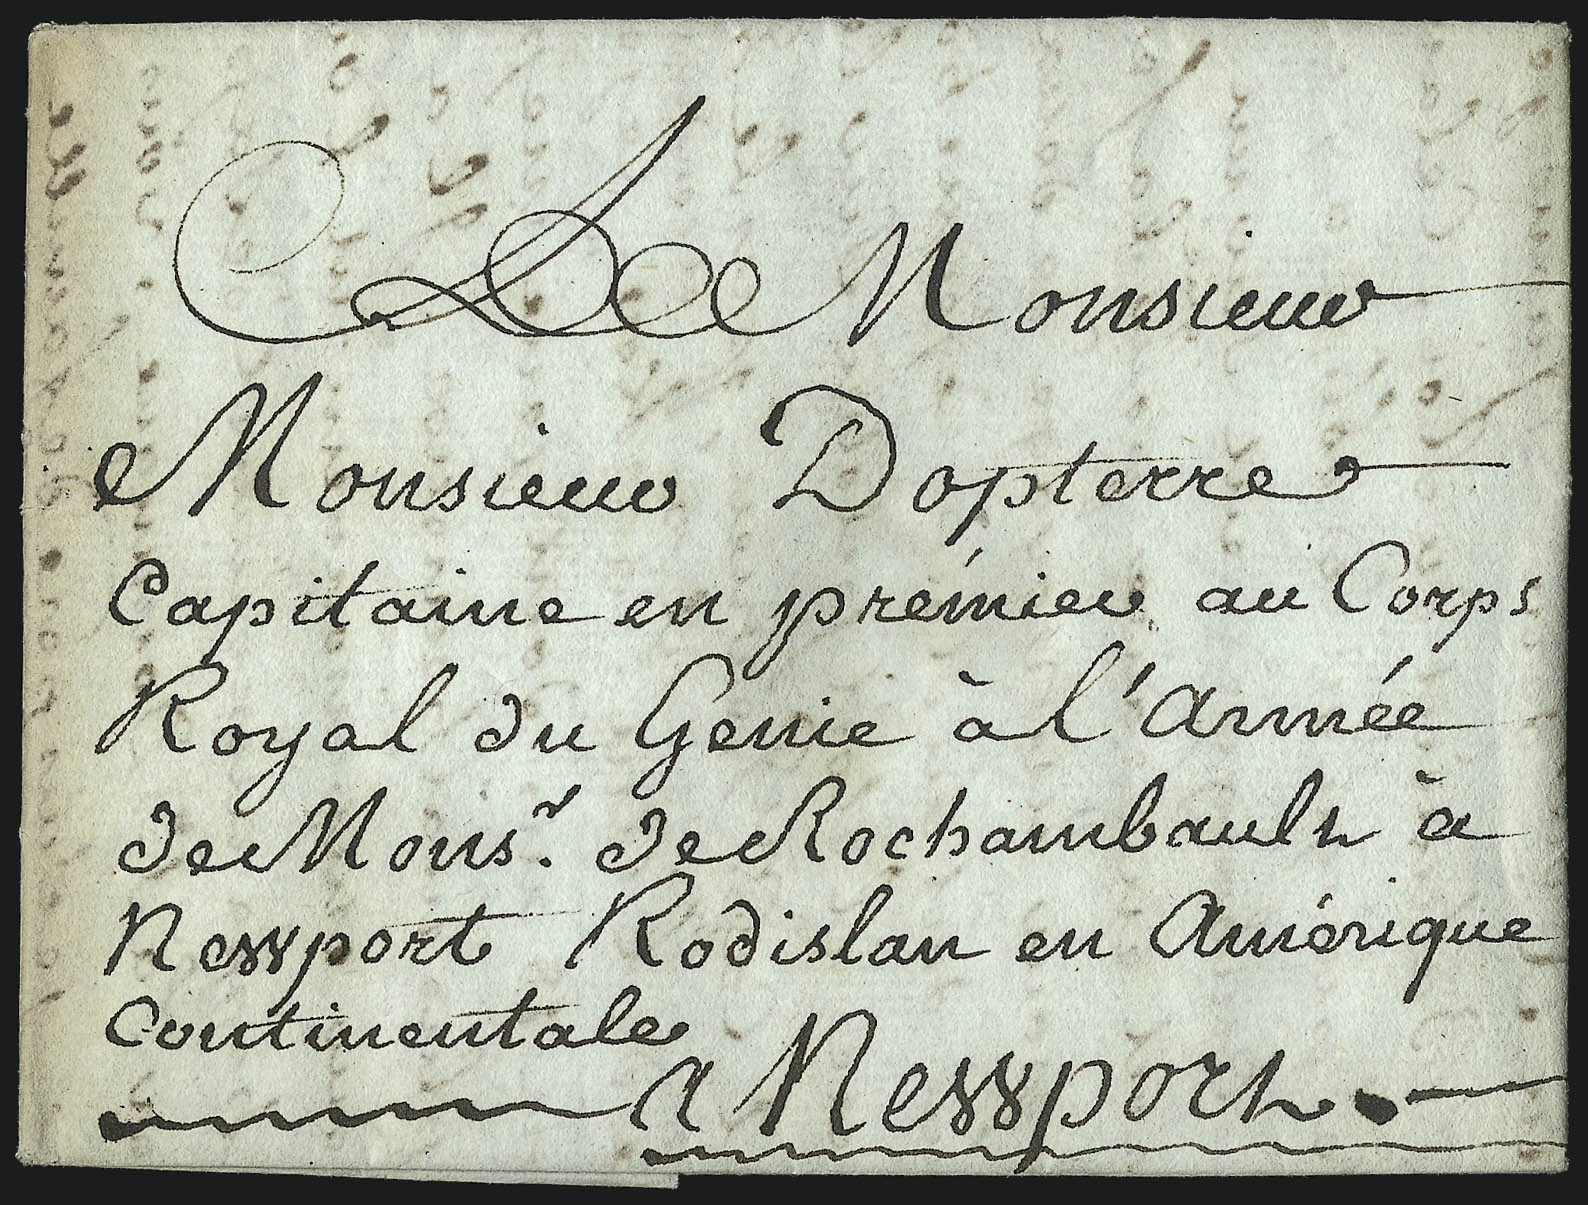 A Monsieur
Monsieur Dopterre
Capitaine en prémier au Corps
Royal du Genie à l'Armée
de Mons.r de Rochambault à
Newport Rodislan en Amérique
Continentale
a Newport.